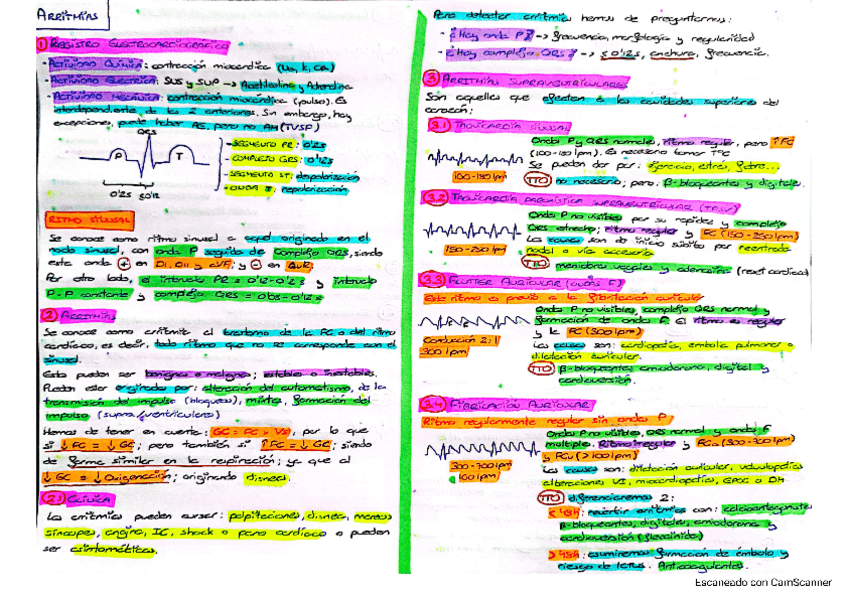 ARRITMIAS
① REGISTRO ELECTROCARDIOGRÁFICO
- ACTIVIDAD QUÍMICA: contracción miocárdica (Na, K, Ca).
- ACTIVIDAD ELÉCTRICA: SNS y SNP → Acetilcolina y Adrenalina
- ACTIVIDAD MECÁNICA: contracción miocárdica (pulso). Es
interdependiente de las 2 anteriores. Sin embargo, hay
excepciones, puede haber AE, pero no AM (TVSP)
QRS
P
T
- SEGMENTO PR: 0'2s
- COMPLEJO QRS: 0'12s
- SEGMENTO ST: despolarización
- ONDA T: repolarización.
0'2s
RITMO SINUSAL
Se conoce como ritmo sinusal a aquel originado en el
nodo sinusal, con onda P seguida de complejo QRS, siendo
esta onda + en DI, DII y aVF; y - en aVR.
Por otro lado, el intervalo PR = 0'12-0'2s y intervalo
P-P constante y complejo QRS = 0'08-0'12s
② ARRITMIAS
Se conoce como arritmia al trastorno de la FC o del ritmo
cardíaco, es decir, todo ritmo que no se corresponde con el
sinusal.
Estas pueden ser benignas o malignas; estables o inestables.
Pueden estar originadas por: alteración del automatismo, de la
transmisión del impulso (bloqueos), mixtas, formación del
impulso (supra./ventriculares)
Hemos de tener en cuenta: GC = FC × VS, por lo que
si ↓FC = ↓GC; pero también si ↑FC = ↓GC; siendo
de forma similar en la respiración; ya que al
↓GC = ↓Oxigenación; originando disnea.
2.1 CLÍNICA
Las arritmias pueden cursar: palpitaciones, disnea, mareos
síncopes, angina, IC, shock o paro cardíaco o pueden
ser asintomáticas.
Para detectar arritmia hemos de preguntarnos:
- ¿Hay onda P? → frecuencia, morfología y regularidad
- ¿Hay complejo QRS? → ≤0'12s, anchura, frecuencia.
③ ARRITMIAS SUPRAVENTRICULARES
Son aquellas que afectan a las cavidades superiores del
corazón:
3.1 TAQUICARDIA SINUSAL
Onda P y QRS normales, ritmo regular, pero ↑FC
(100-150 lpm). Es necesario tomar TºC
Se pueden dar por: ejercicio, estrés, fiebre...
100-150 lpm
TTO no necesario; pero: β-bloqueantes y digitale.
3.2 TAQUICARDIA PAROXÍSTICA SUPRAVENTRICULAR (TPSV)
Onda P no visibles por su rapidez y complejo
QRS estrecho; ritmo regular y FC (150-250 lpm)
Las causas son de inicio súbito por reentrada
150-250 lpm
nodal o vía accesoria
TTO maniobras vagales y adenosina (reset cardíaco)
3.3 FLUTTER AURICULAR (ONDAS F)
Este ritmo es previo a la fibrilación auricular
Onda P no visibles, complejo QRS normal y
formación de ondas F. El ritmo es regular
y la FC (300 lpm)
Conducción 2:1
300 lpm
Las causas son: cardiopatía, embolia pulmonar o
dilatación auricular.
TTO β-bloqueantes amiodarona, digital y
cardioversión.
3.4 FIBRILACIÓN AURICULAR
Ritmo regularmente regular sin onda P
Onda P no visible, QRS normal y onda f
múltiple. Ritmo irregular y FCa (300-700 lpm)
y FCv (>100 lpm)
300-700 lpm
100 lpm
Las causas son: dilatación auricular, valvulopatías
alteraciones VI, miocardiopatía, EPOC o DM
TTO diferenciaremos 2:
< 48H: revertir arritmias con: calcioantagonistas
β-bloqueantes, digitales, amiodarona y
cardioversión (flecainida)
> 48H: asumiremos formación de émbolo y
riesgo de ICTUS. Anticoagulantes.
Escaneado con CamScanner